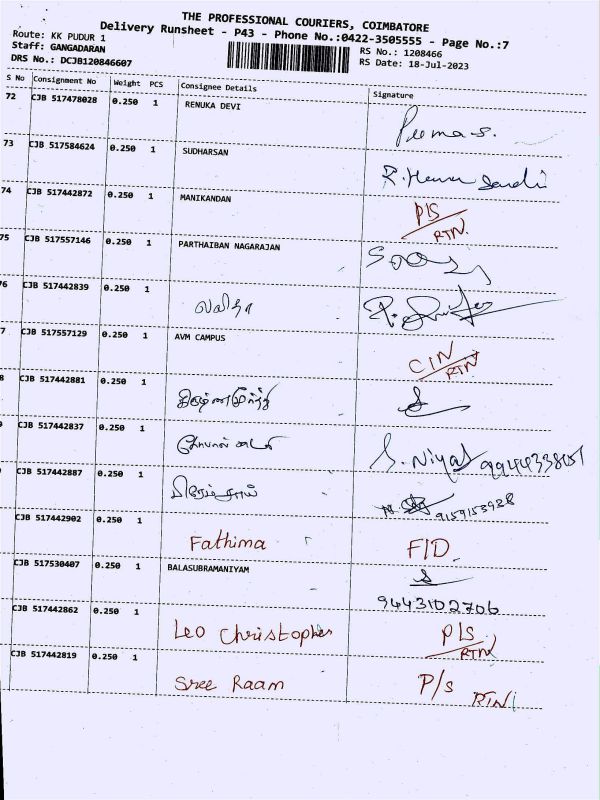 THE PROFESSIONAL COURIERS, COIMBATORE
Delivery Runsheet - P43 - Phone No.:0422-3505555 - Page No.:7
Route: KK PUDUR 1
Staff: GANGADARAN
RS No.: 1208466
DRS No.: DCJB120846607
RS Date: 18-Jul-2023
S No Consignment No Weight PCS Consignee Details Signature
72 CJB 517478028 0.250 1 RENUKA DEVI
73 CJB 517584624 0.250 1 SUDHARSAN
74 CJB 517442872 0.250 1 MANIKANDAN P/S RTN
75 CJB 517557146 0.250 1 PARTHAIBAN NAGARAJAN
76 CJB 517442839 0.250 1
7 CJB 517557129 0.250 1 AVM CAMPUS C/N RTN
8 CJB 517442881 0.250 1
CJB 517442837 0.250 1 S. Niyas
CJB 517442887 0.250 1 9159153928
CJB 517442902 0.250 1 Fathima FID
CJB 517530407 0.250 1 BALASUBRAMANIYAM 9443102706
CJB 517442862 0.250 1 Leo Christopher P/S RTN
CJB 517442819 0.250 1 Sree Raam P/s RTN